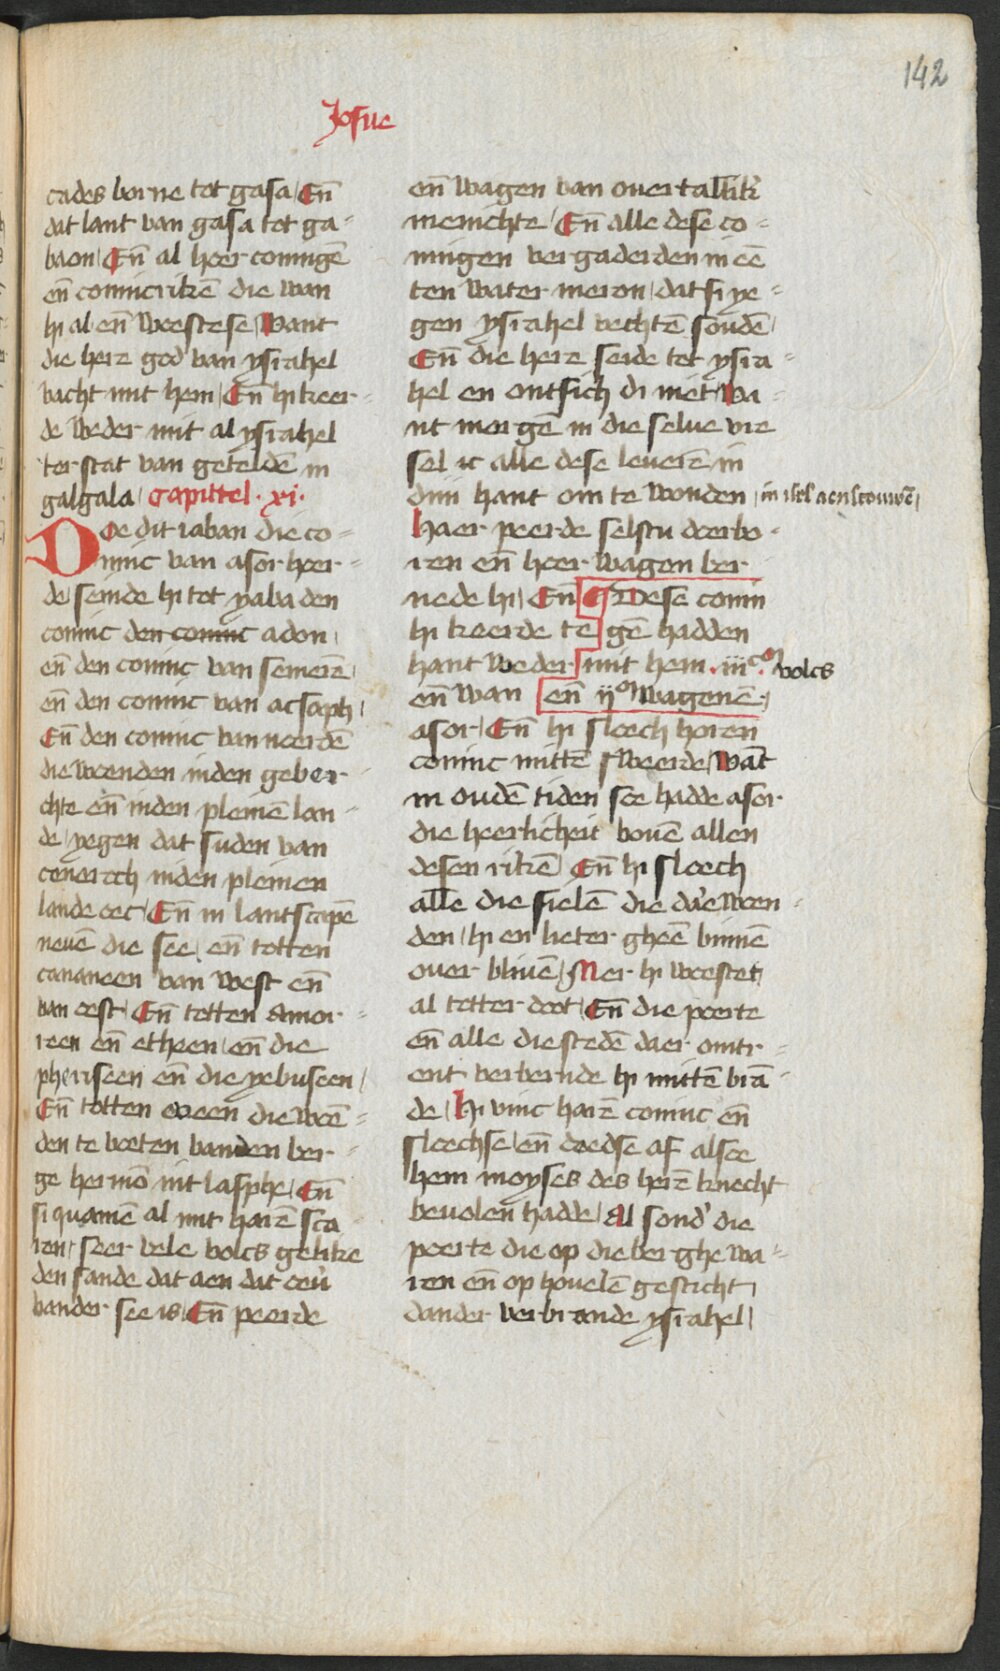 142
Josue
cades borne tot gasa / En̄
dat lant van gasa tot ga-
baon / En̄ al heer coningē
en̄ conincrikē die wan
hi al en̄ woestese / Want
die here god van ysrahel
vacht mit hem / En̄ hi keer-
de weder mit al ysrahel
ter stat van geteldē in
galgala / Capittel · xi ·
Doe dit iaban die co-
ninc van asor heer-
de / seinde hi tot yaba den
coninc den coninc adon /
en̄ den coninc van semerē /
en̄ den coninc van acsaph /
En̄ den coninc van neerdē
die woenden inden geber-
chte en̄ inden pleinē lan-
de / yegen dat suden van
ceneroth inden pleinen
lande oec / En̄ in lantscapē
nevē die see / en̄ totten
cananeen van west en̄
van oest / En̄ totten amor-
reen en̄ etheen / en̄ die
pheriseen en̄ die yebuseen /
En̄ totten eveen die woē-
den te voeten vanden ber-
ge hermō mit lasphe / En̄
si quamē al mit harē sca
ren / seer vele volcs gelike
den sande dat aen dat oeu̇
vander see is / En̄ peerde
en̄ wagen van ouertallik̇
menichte / En̄ alle dese co-
ningen vergaderden in eē
ten water meron / dat si ye-
gen ysrahel vechtē soudē /
En̄ die here seide tot ysra-
hel en ontsich di niet / Wa-
nt morgē in die selue vre
sel ic alle dese leuerē in
dijn hant om te wonden / in isrl̄ aenscouwē /
Haer peerde selstu doerbo-
ren en̄ heer wagen ber-
nede hi / En̄ Dese conin
hi keerde te gē hadden
hant weder mit hem · iiiᶜᵒⁿ volcs
en̄ wan en̄ ijᵒⁿ wagenē /
asor / En̄ hi sloech horen
coninc mittē sweerde / Wāt
in oudē tiden soe hadde asor
die heerlicheit bouē allen
desen rikē / En̄ hi sloech
alle die sielē die dae̍ woen-
den / hi en lieter gheē binnē
ouer bliuē / Mer hi woestet
al totter doot / En̄ die poerte
en̄ alle die stedē daer omtr-
ent verbernde hi mittē brā-
de / Hi vinc harē coninc en̄
sloechse / en̄ doedse af alsoe
hem moyses des herē knecht
beuolen hadde / Al sond' die
poerte die op die berghe wa-
ren en̄ op houelē gesticht /
dander verbrande ysrahel /